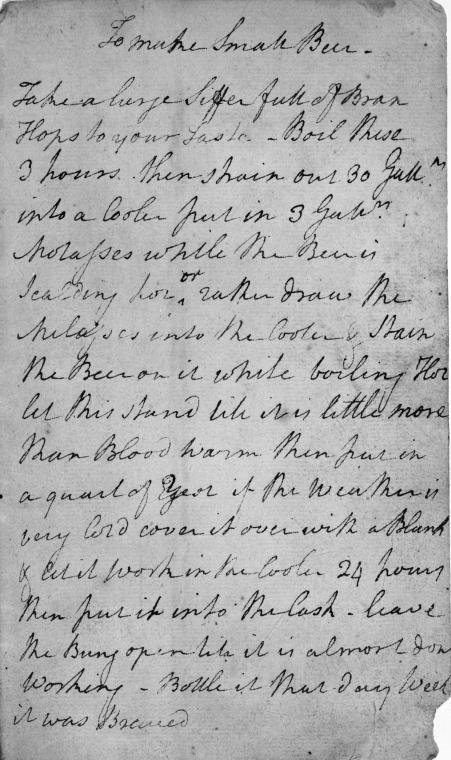 To make Small Beer -
Take a large Siffer full of Bran
Hops to your Taste - Boil these
3 hours. then strain out 30 Gall.n
into a Cooler put in 3 Gall.n
Molasses while the Beer is
Scalding hot or rather draw the
Melasses into the Cooler & Stain
the Beer on it while boiling Hot
let this stand till it is little more
than Blood warm then put in
a quart of Yest if the Weather is
very Cold cover it over with a Blank
& let it work in the Cooler 24 hours
then put it into the Cask - leave
the Bung open till it is almost don
working - Bottle it that day Week
it was Brewed